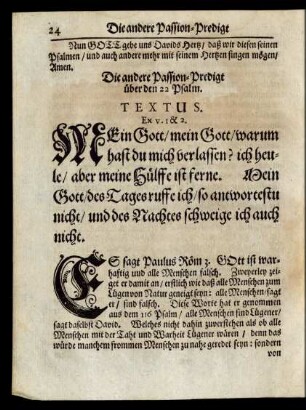 24 Die andere Passion-Predigt
Nun GOTT gebe uns Davids Hertz/ daß wir diesen seinen
Psalmen/ und auch andere mehr mit seinem Hertzen singen mögen/
Amen.
Die andere Passion-Predigt
über den 22 Psalm.
TEXTUS.
Ex v. 1 & 2.
MEin Gott/ mein Gott/ warum
hast du mich verlassen? ich heu-
le/ aber meine Hülffe ist ferne. Mein
Gott/ des Tages ruffe ich/ so antwortestu
nicht/ und des Nachtes schweige ich auch
nicht.
ES sagt Paulus Röm 3. GOtt ist war-
haftig und alle Menschen falsch. Zweyerley zei-
get er damit an/ erstlich wie daß alle Menschen zum
Lügen von Natur geneigt seyn: alle Menschen sagt
er/ sind falsch. Diese Worte hat er genommen
aus dem 116 Psalm/ alle Menschen sind Lügener/
sagt daselbst David. Welches nicht dahin zuverstehen als ob alle
Menschen mit der Taht und Warheit Lügener wären/ denn das
würde manchem frommen Menschen zu nahe geredet seyn: sondern
von